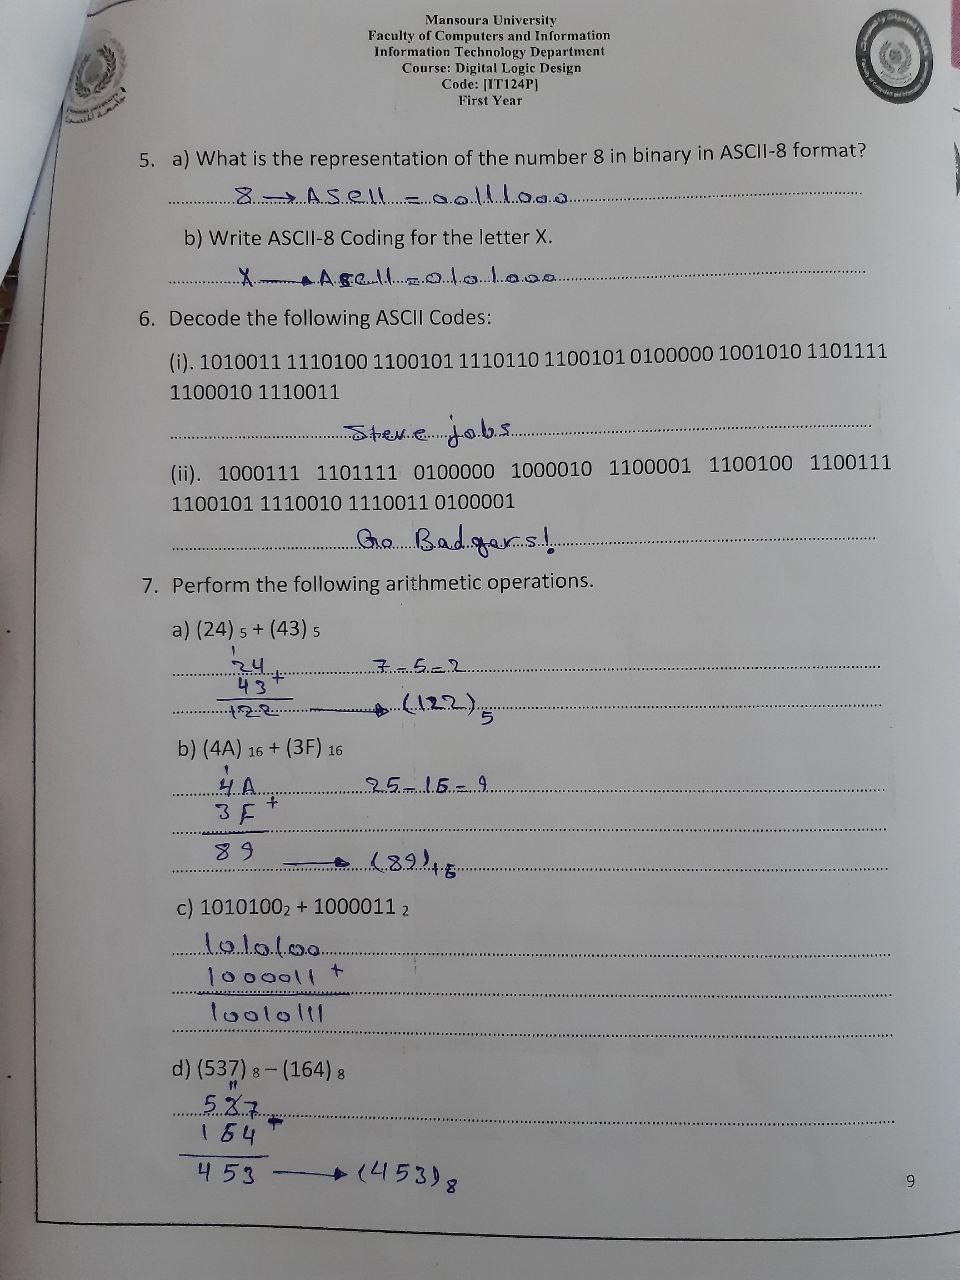 Mansoura University
Faculty of Computers and Information
Information Technology Department
Course: Digital Logic Design
Code: [IT124P]
First Year
5. a) What is the representation of the number 8 in binary in ASCII-8 format?
8 → ASCII = 00111000
b) Write ASCII-8 Coding for the letter X.
X → ASCII = 0101000
6. Decode the following ASCII Codes:
(i). 1010011 1110100 1100101 1110110 1100101 0100000 1001010 1101111
1100010 1110011
Steve jobs
(ii). 1000111 1101111 0100000 1000010 1100001 1100100 1100111
1100101 1110010 1110011 0100001
Go Badgers!
7. Perform the following arithmetic operations.
a) (24) 5 + (43) 5
1
24 7-5=2
43 +
122 → (122)5
b) (4A) 16 + (3F) 16
1
4A 25-16=9
3F +
89 → (89)16
c) 10101002 + 1000011 2
1010100
1000011 +
10010111
d) (537) 8 – (164) 8
11
537
164
453 → (453)8
9